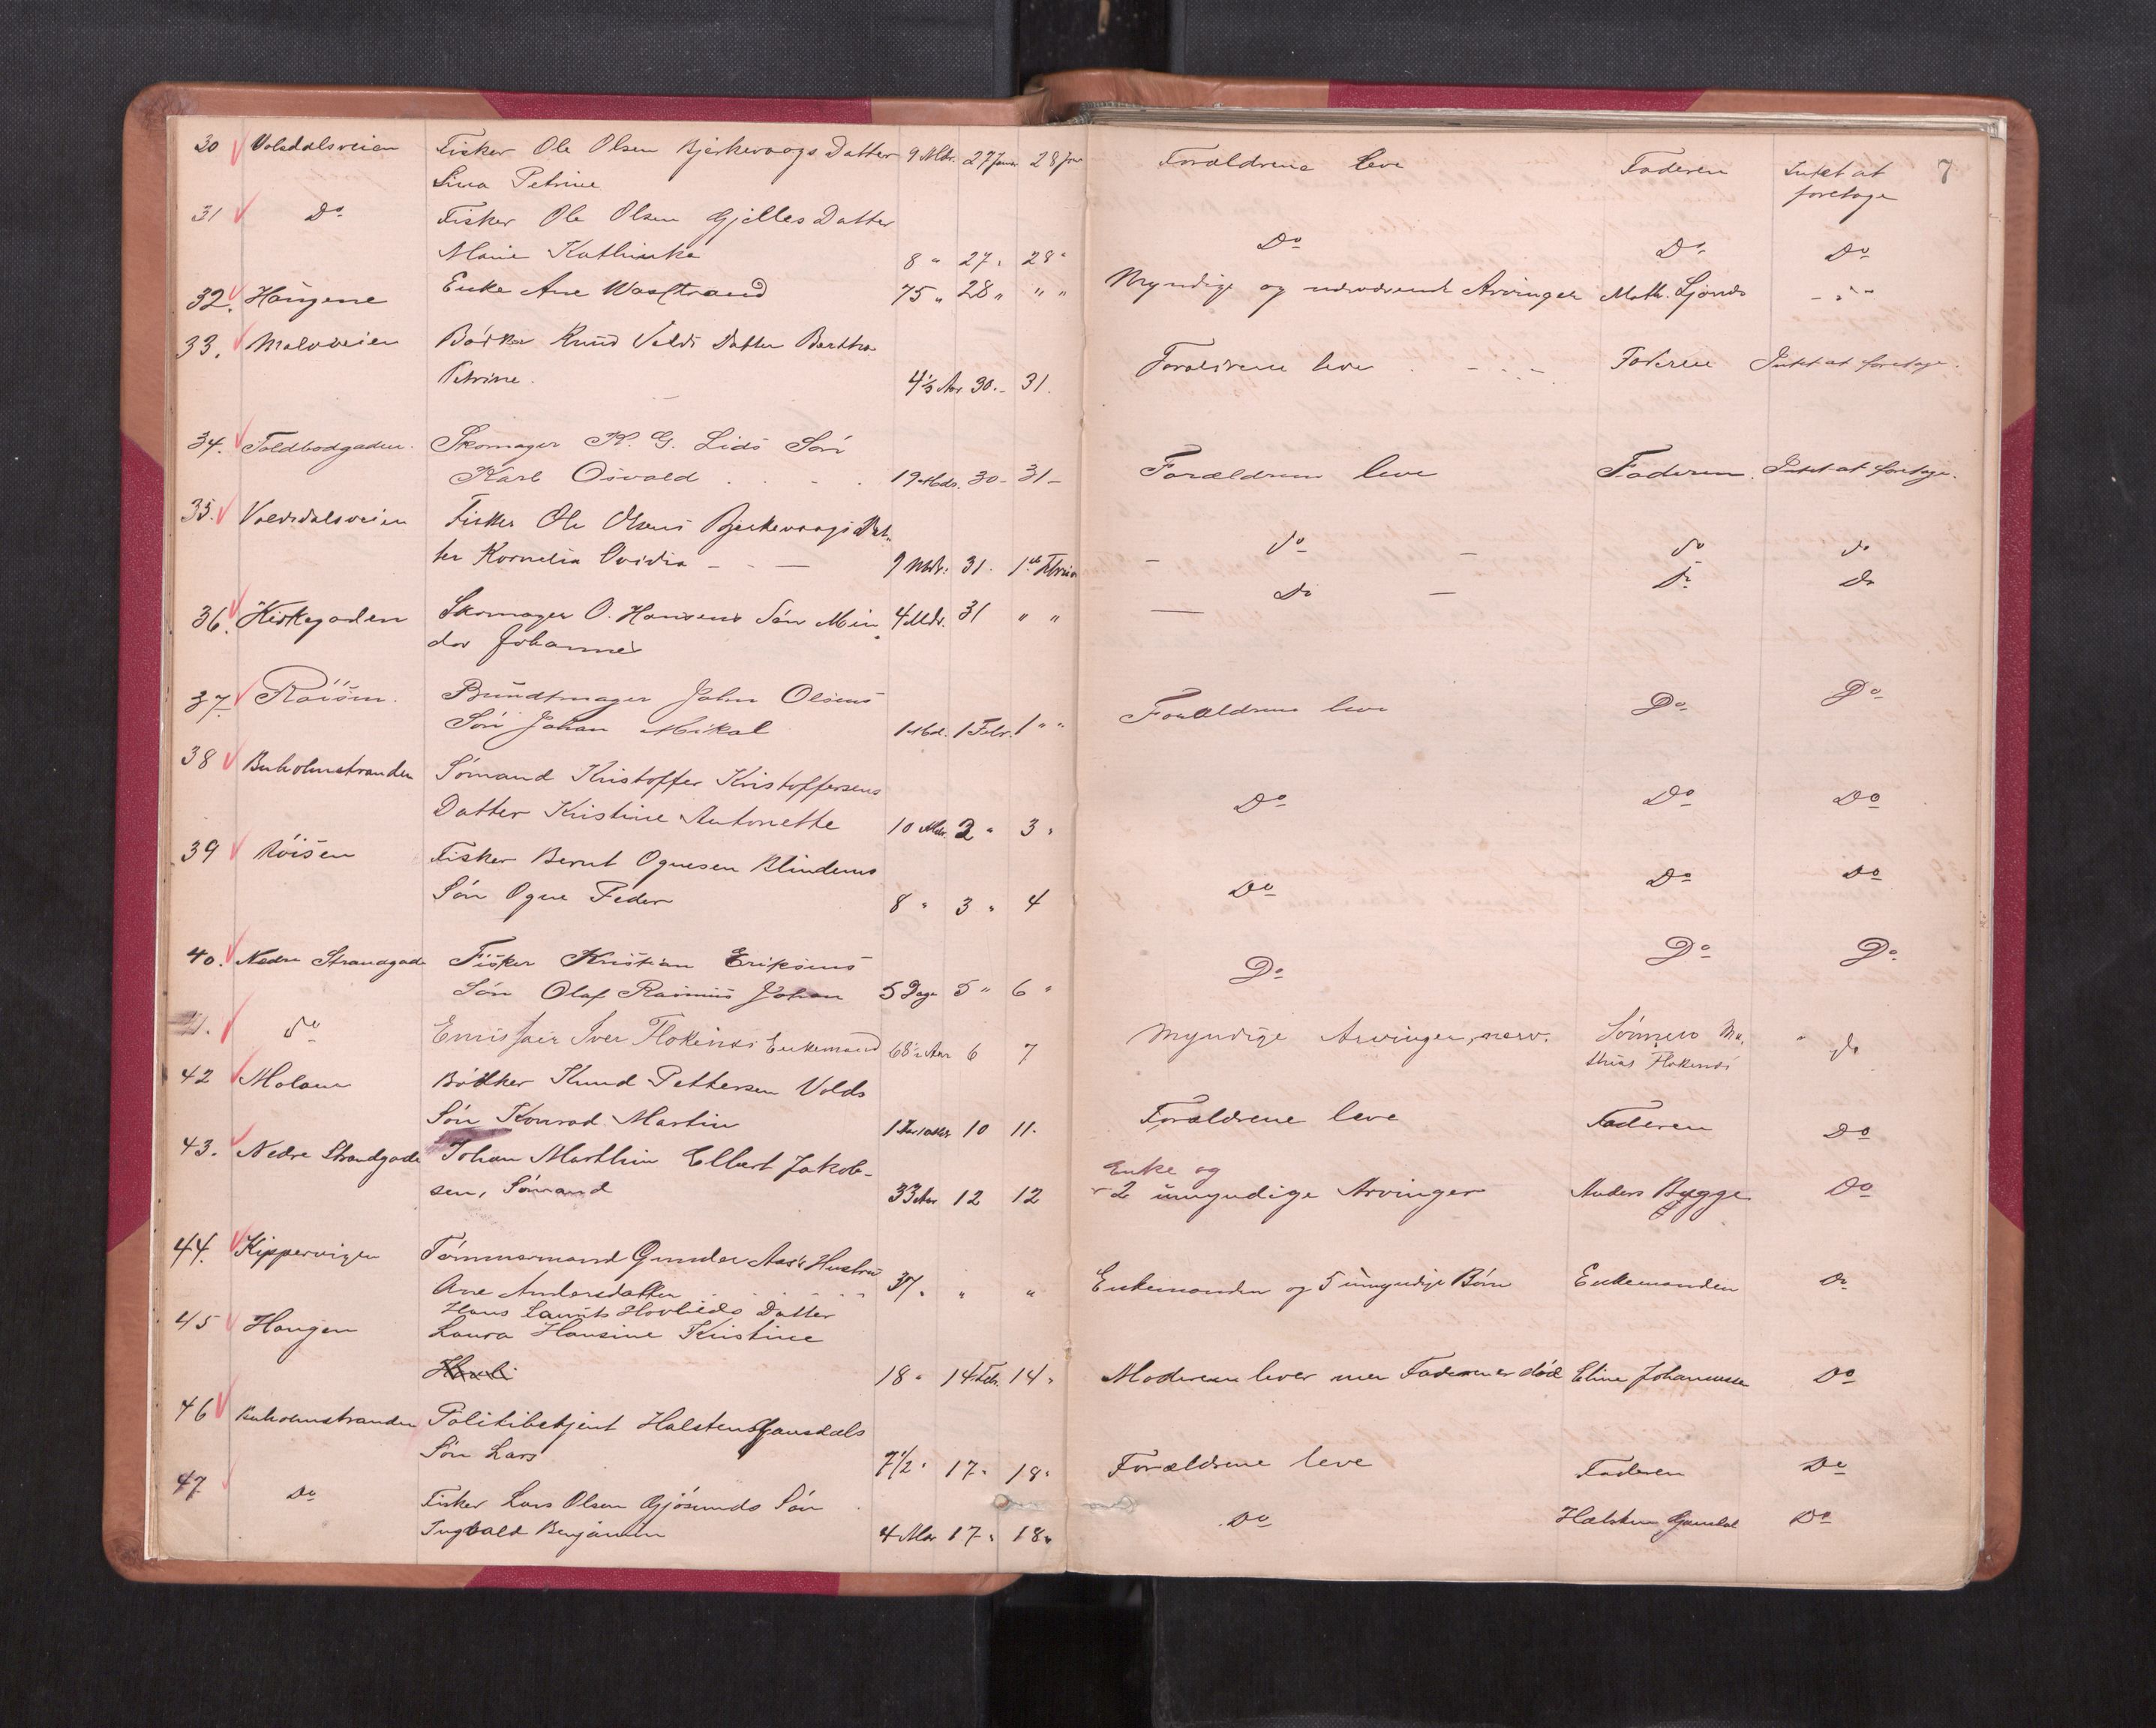 7
30 Volsdalsveien Fisker Ole Olsen Bjerkevaags Datter 9 Mdr. 27 Januar 28 Jan Forældrene leve Faderen Intet at
Lina Petrine foretage
31 Do Fisker Ole Olsen Gjelles Datter
Marie Kathinka 8 " 27 " 28 " Do Do Do
32. Haugene Enke Ane Wasstrand 75 " 28 " " " Myndige og nærværende Arvinger Math. - " -
33. Moloveien Bødker Knud Volds Datter Bertha
Petrine. 4½ Aar 30. - 31. Forældrene leve Faderen Intet at foretage.
34. Toldbodgaden. Skomager K. G. Lids Søn
Karl Osvald 19 Mdr. 30 - 31 - Forældrene leve Faderen. Intet at foretage.
35. Volsdalsveien Fisker Ole Olsens Bjerkevaags Dat-
ter Kornelia Ovidia - - - 9 Mdr. 31. 1ste Februar - do - do do
36. Kirkegaden Skomager O. Hansens Søn Min 4 Mdr. 31 " " — Do - Do Do
dor Johannes
37. Røisen. Bundtmager John Olsens
Søn Johan Mikal 1 Md. 1 Febr. 1 " " Forældrene leve Do Do
38 Buholmstranden Sømand Kristoffer Kristoffersens
Datter Kristine Antonette 10 Mdr. 2 " 3 " Do Do Do
39 Røisen Fisker Bernt Ognesen Blindems
Søn Ogne Peder 8 " 3 " 4 Do Do Do
40. Nedre Strandgade Fisker Kristian Eriksens
Søn Olaf Rasmus Johan 5 Dage 5 " 6 " Do Do Do
41. do Emissær Iver Flokenes Enkemand 68½ Aar 6 7 Myndige Arvinger, nærv. Sønnen Ma- " do
thias Flokenes
42 Moloen Bødker Knud Pettersen Volds
Søn Konrad Martin 10 11. Forældrene leve Faderen Do
43. Nedre Strandgade Johan Marthin Elbert Jakob-
sen, Sømand 33 Aar 12 12 Enke og
2 umyndige Arvinger Anders Bygge Do
44. Kippervigen Tømmermand Gunder Aas's Hustru
Ane Andersdatter 37. " " Enkemanden og 5 umyndige Børn Enkemanden Do
Hans Laurits Hovlids Datter
45 Haugen Laura Hansine Kristine
18 " 14 Feb. 14 " Moderen lever men Faderen er død Eline Johannessen Do
46 Buholmstranden Politibetjent Halsten Gausdals
Søn Lars 7½ " 17 " 18 " Forældrene leve Faderen Do
47 Do Fisker Lars Olsen Gjøsunds Søn
Ingvald Benjamin 4 Mdr 17 " 18 " Do Halsten Gausdal Do